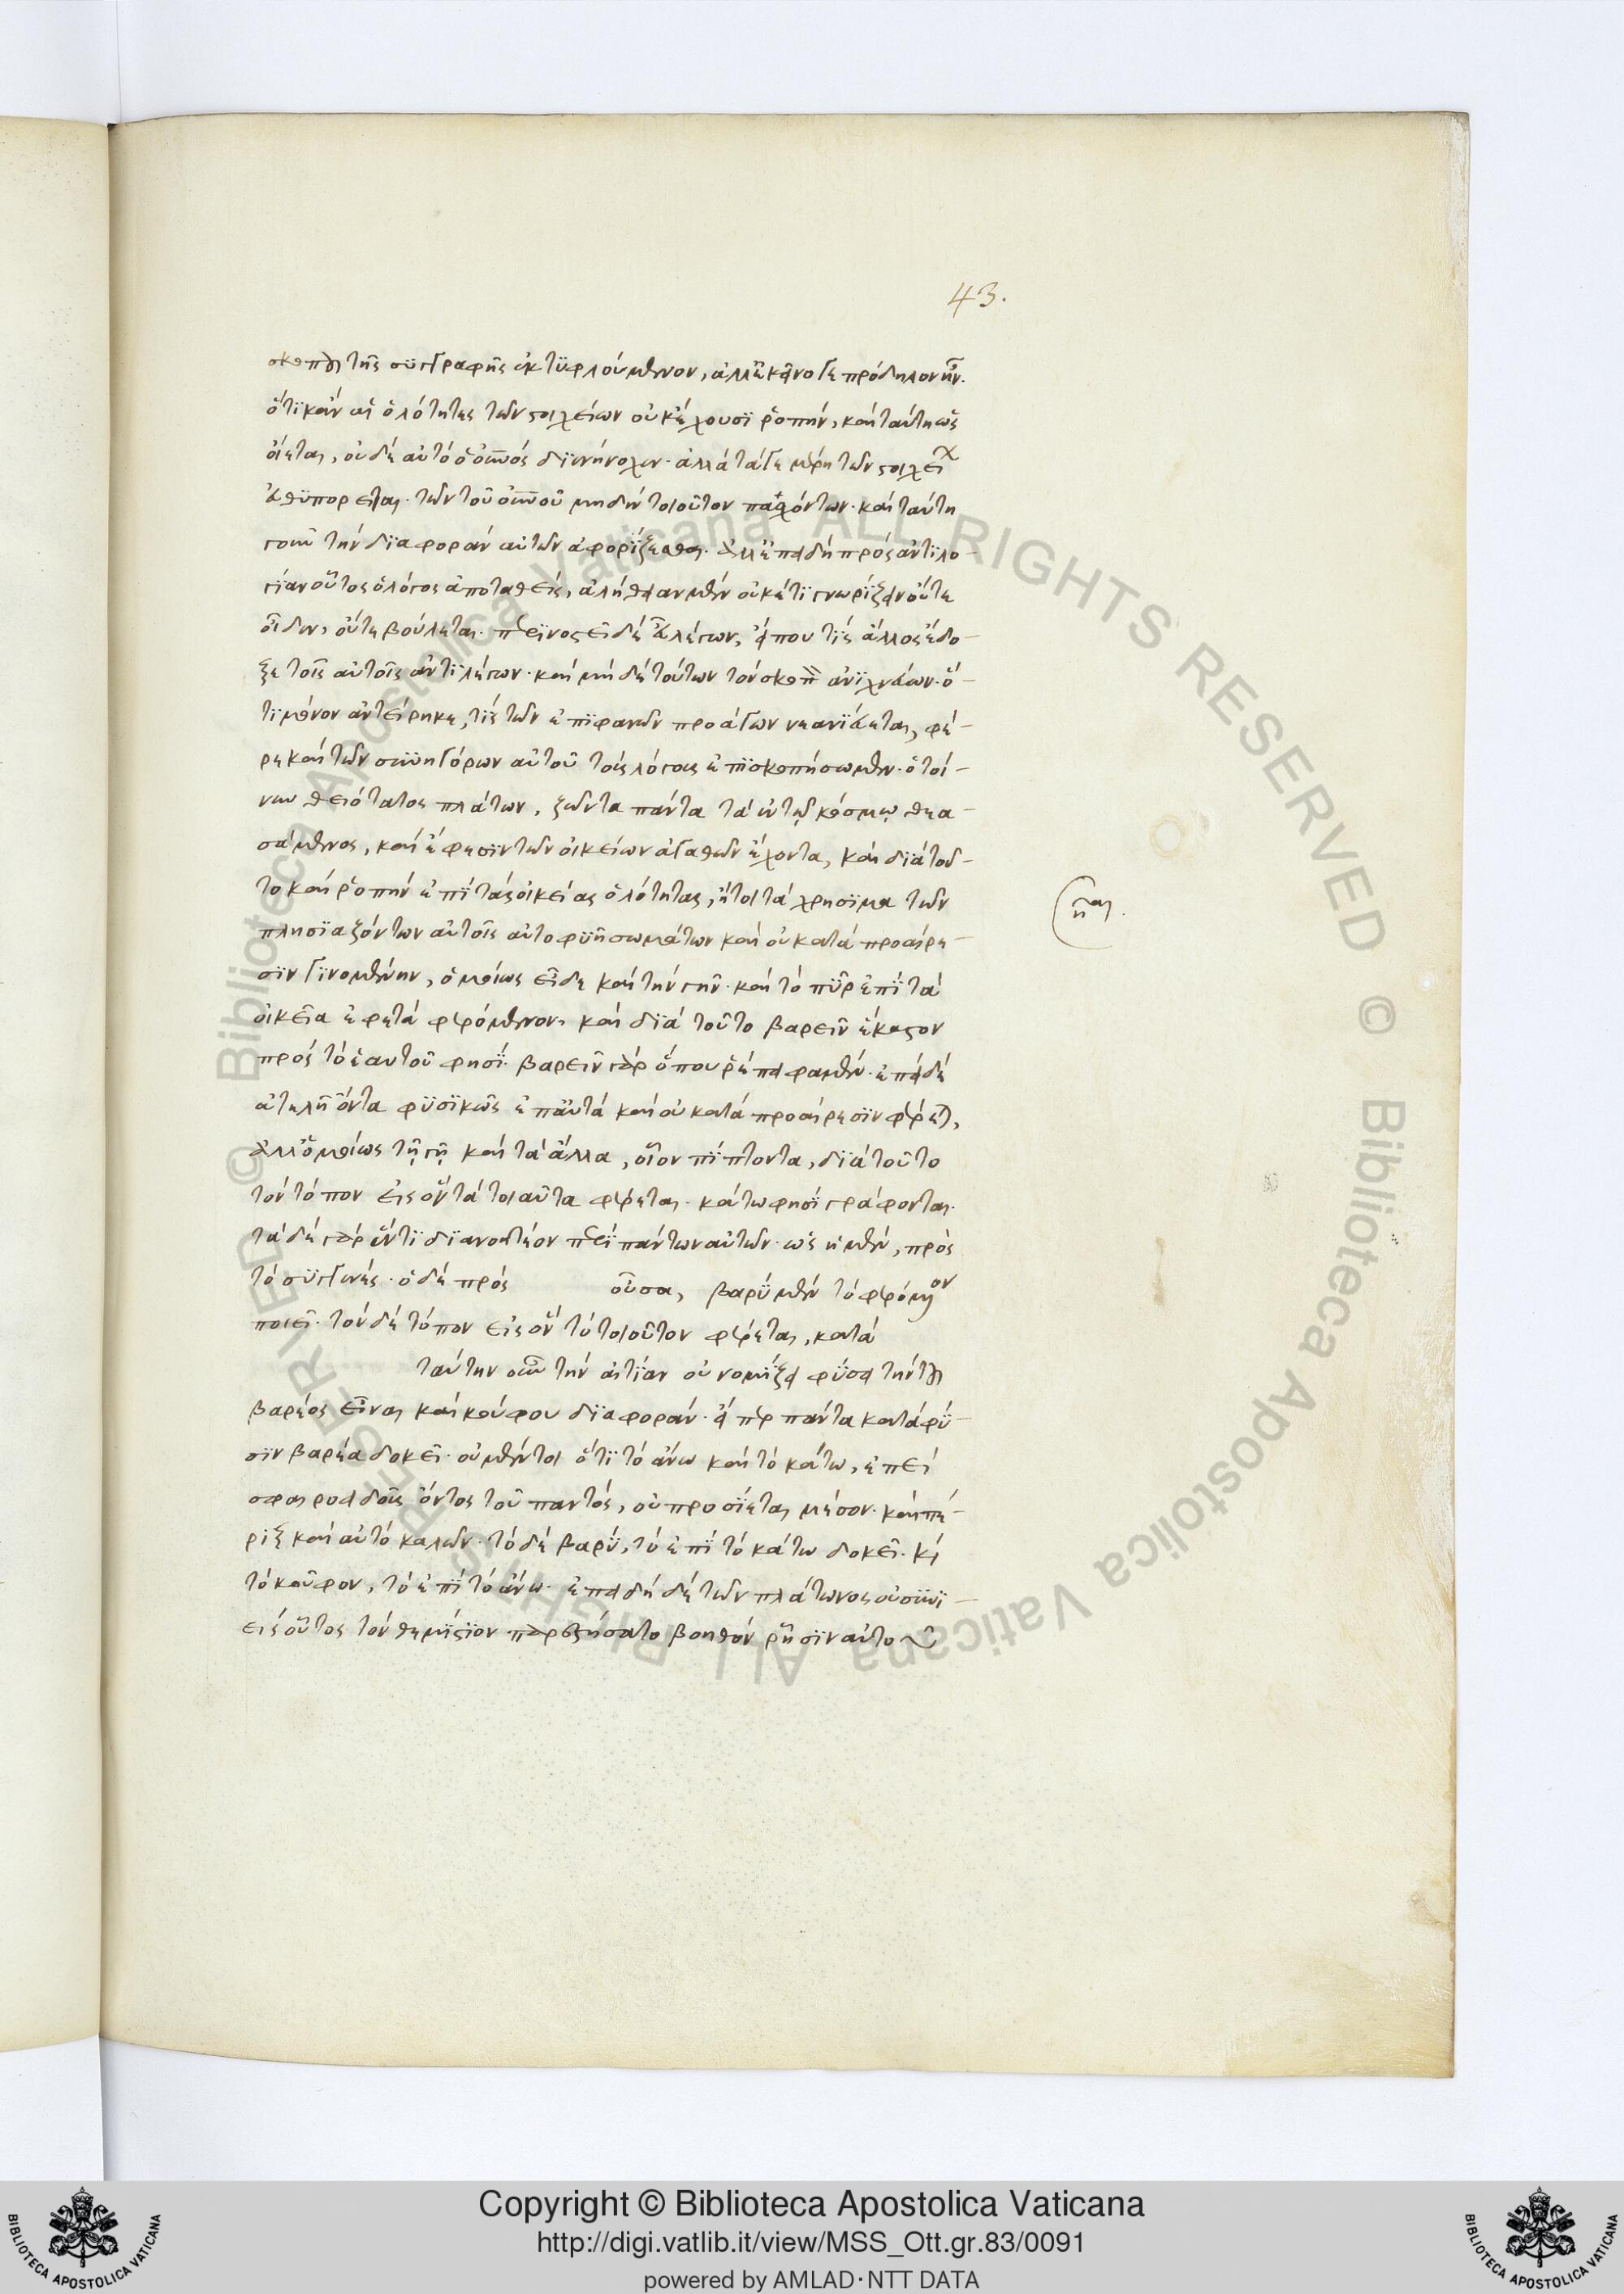 43.
σκοπὸν τῆς συγγραφῆς ἐκτυφλούμενον, ἀλλ' ἐκεῖνο γε πρόδηλον ἦν.
ὅτι κἂν αἱ ὁλότητες τῶν στοιχείων οὐκ ἔχουσι ῥοπήν, καὶ ταύτη ὡς
οἴεται, οὐδὲ αὐτὸ ὁ οὐνός διενήνοχεν. ἀλλὰ τά γε μέρη τῶν στοιχεί
τῶν τοῦ οὐνοῦ μηδὲν τοιοῦτον πασχόντων. καὶ ταύτη
γοῦν τὴν διαφορὰν αὐτῶν ἀφορίζεσθαι. ἀλλ' ἐπειδὴ πρὸς ἀντιλο-
γίαν οὗτος ὁ λόγος ἀποταθείς, ἀλήθειαν μὲν οὐκ ἔτι γνωρίζειν οὔτε
οἶδεν, οὔτε βούλεται. λέγων, εἴ που τις ἄλλος ἔδο-
ξε τοῖς αὐτοῖς ἀντιλέγων. καὶ μηδὲ τούτων τὸν σκοπὸν ἀνιχνεύων. ὅ-
τι μόνον ἀντείρηκε, τὶς τῶν ἐπιφανῶν προάγων νεανιεύεται, φέ-
ρε καὶ τῶν συνηγόρων αὐτοῦ τοῖς λόγοις ἐπισκοπήσωμεν. ὁ τοί-
νυν θειότατος πλάτων, ζῶντα πάντα τὰ ἐν τῷ κόσμῳ θεα-
σάμενος, καὶ ἔφεσιν τῶν οἰκείων ἀγαθῶν ἔχοντα, καὶ διὰ τοῦ-
το καὶ ῥοπὴν ἐπὶ τὰς οἰκείας ὁλότητας, ἤτοι τὰ χρήσιμα τῶν
πλησιαζόντων αὐτοῖς αὐτοφυῆ σωμάτων καὶ οὐ κατὰ προαίρε-
σιν γινομένην, ὁμοίως εἶδε καὶ τὴν γῆν. καὶ τὸ πῦρ ἐπὶ τὰ
οἰκεῖα ἐφετὰ φερόμενον, καὶ διὰ τοῦτο βαρεῖν ἕκαστον
πρὸς τὸ ἑαυτοῦ φησί. βαρεῖν γὰρ ὅπου ῥέπει φαμέν. ἐπεὶ δὲ
ἀτελῆ ὄντα φυσικῶς ἐπ' αὐτὰ καὶ οὐ κατὰ προαίρεσιν φέρεται,
ἀλλ' ὁμοίως τῇ γῇ καὶ τὰ ἄλλα, οἷον πίπτοντα, διὰ τοῦτο
τὸν τόπον εἰς ὃν τὰ τοιαῦτα φέρεται. κάτω φησί γράφονται.
τὰ δὲ γὰρ ἕν τι διανοητέον περὶ πάντων αὐτῶν. ὡς ἡ μὲν, πρὸς
τὸ συγγενές. ὁδὲ πρὸς οὖσα, βαρὺ μὲν τὸ φερόμενον
ποιεῖ. τὸν δὲ τόπον εἰς ὃν τὸ τοιοῦτον φέρεται, κατὰ
ταύτην οὖν τὴν αἰτίαν οὐ νομίζει φύσει τὴν τοῦ
βαρέος εἶναι καὶ κούφου διαφοράν. εἴπερ πάντα κατὰ φύ-
σιν βαρέα δοκεῖ. οὐ μέντοι ὅτι τὸ ἄνω καὶ τὸ κάτω, ἐπεὶ
σφαιροειδοῦς ὄντος τοῦ παντός, οὐ προσίεται μέσον. καὶ πέ-
ριξ καὶ αὐτὸ καλῶν. τὸ δὲ βαρύ, τὸ ἐπὶ τὸ κάτω δοκεῖ. καὶ
τὸ κοῦφον, τὸ ἐπὶ τὸ ἄνω. ἐπειδὴ δὲ τῶν πλάτωνος οὐ συνι-
εὶς οὗτος τὸν θεμίστιον παρεστήσατο βοηθόν ῥῆσιν αὐτοῦ
Copyright © Biblioteca Apostolica Vaticana
http://digi.vatlib.it/view/MSS_Ott.gr.83/0091
powered by AMLAD·NTT DATA
BIBLIOTECA APOSTOLICA VATICANA
BIBLIOTECA APOSTOLICA VATICANA